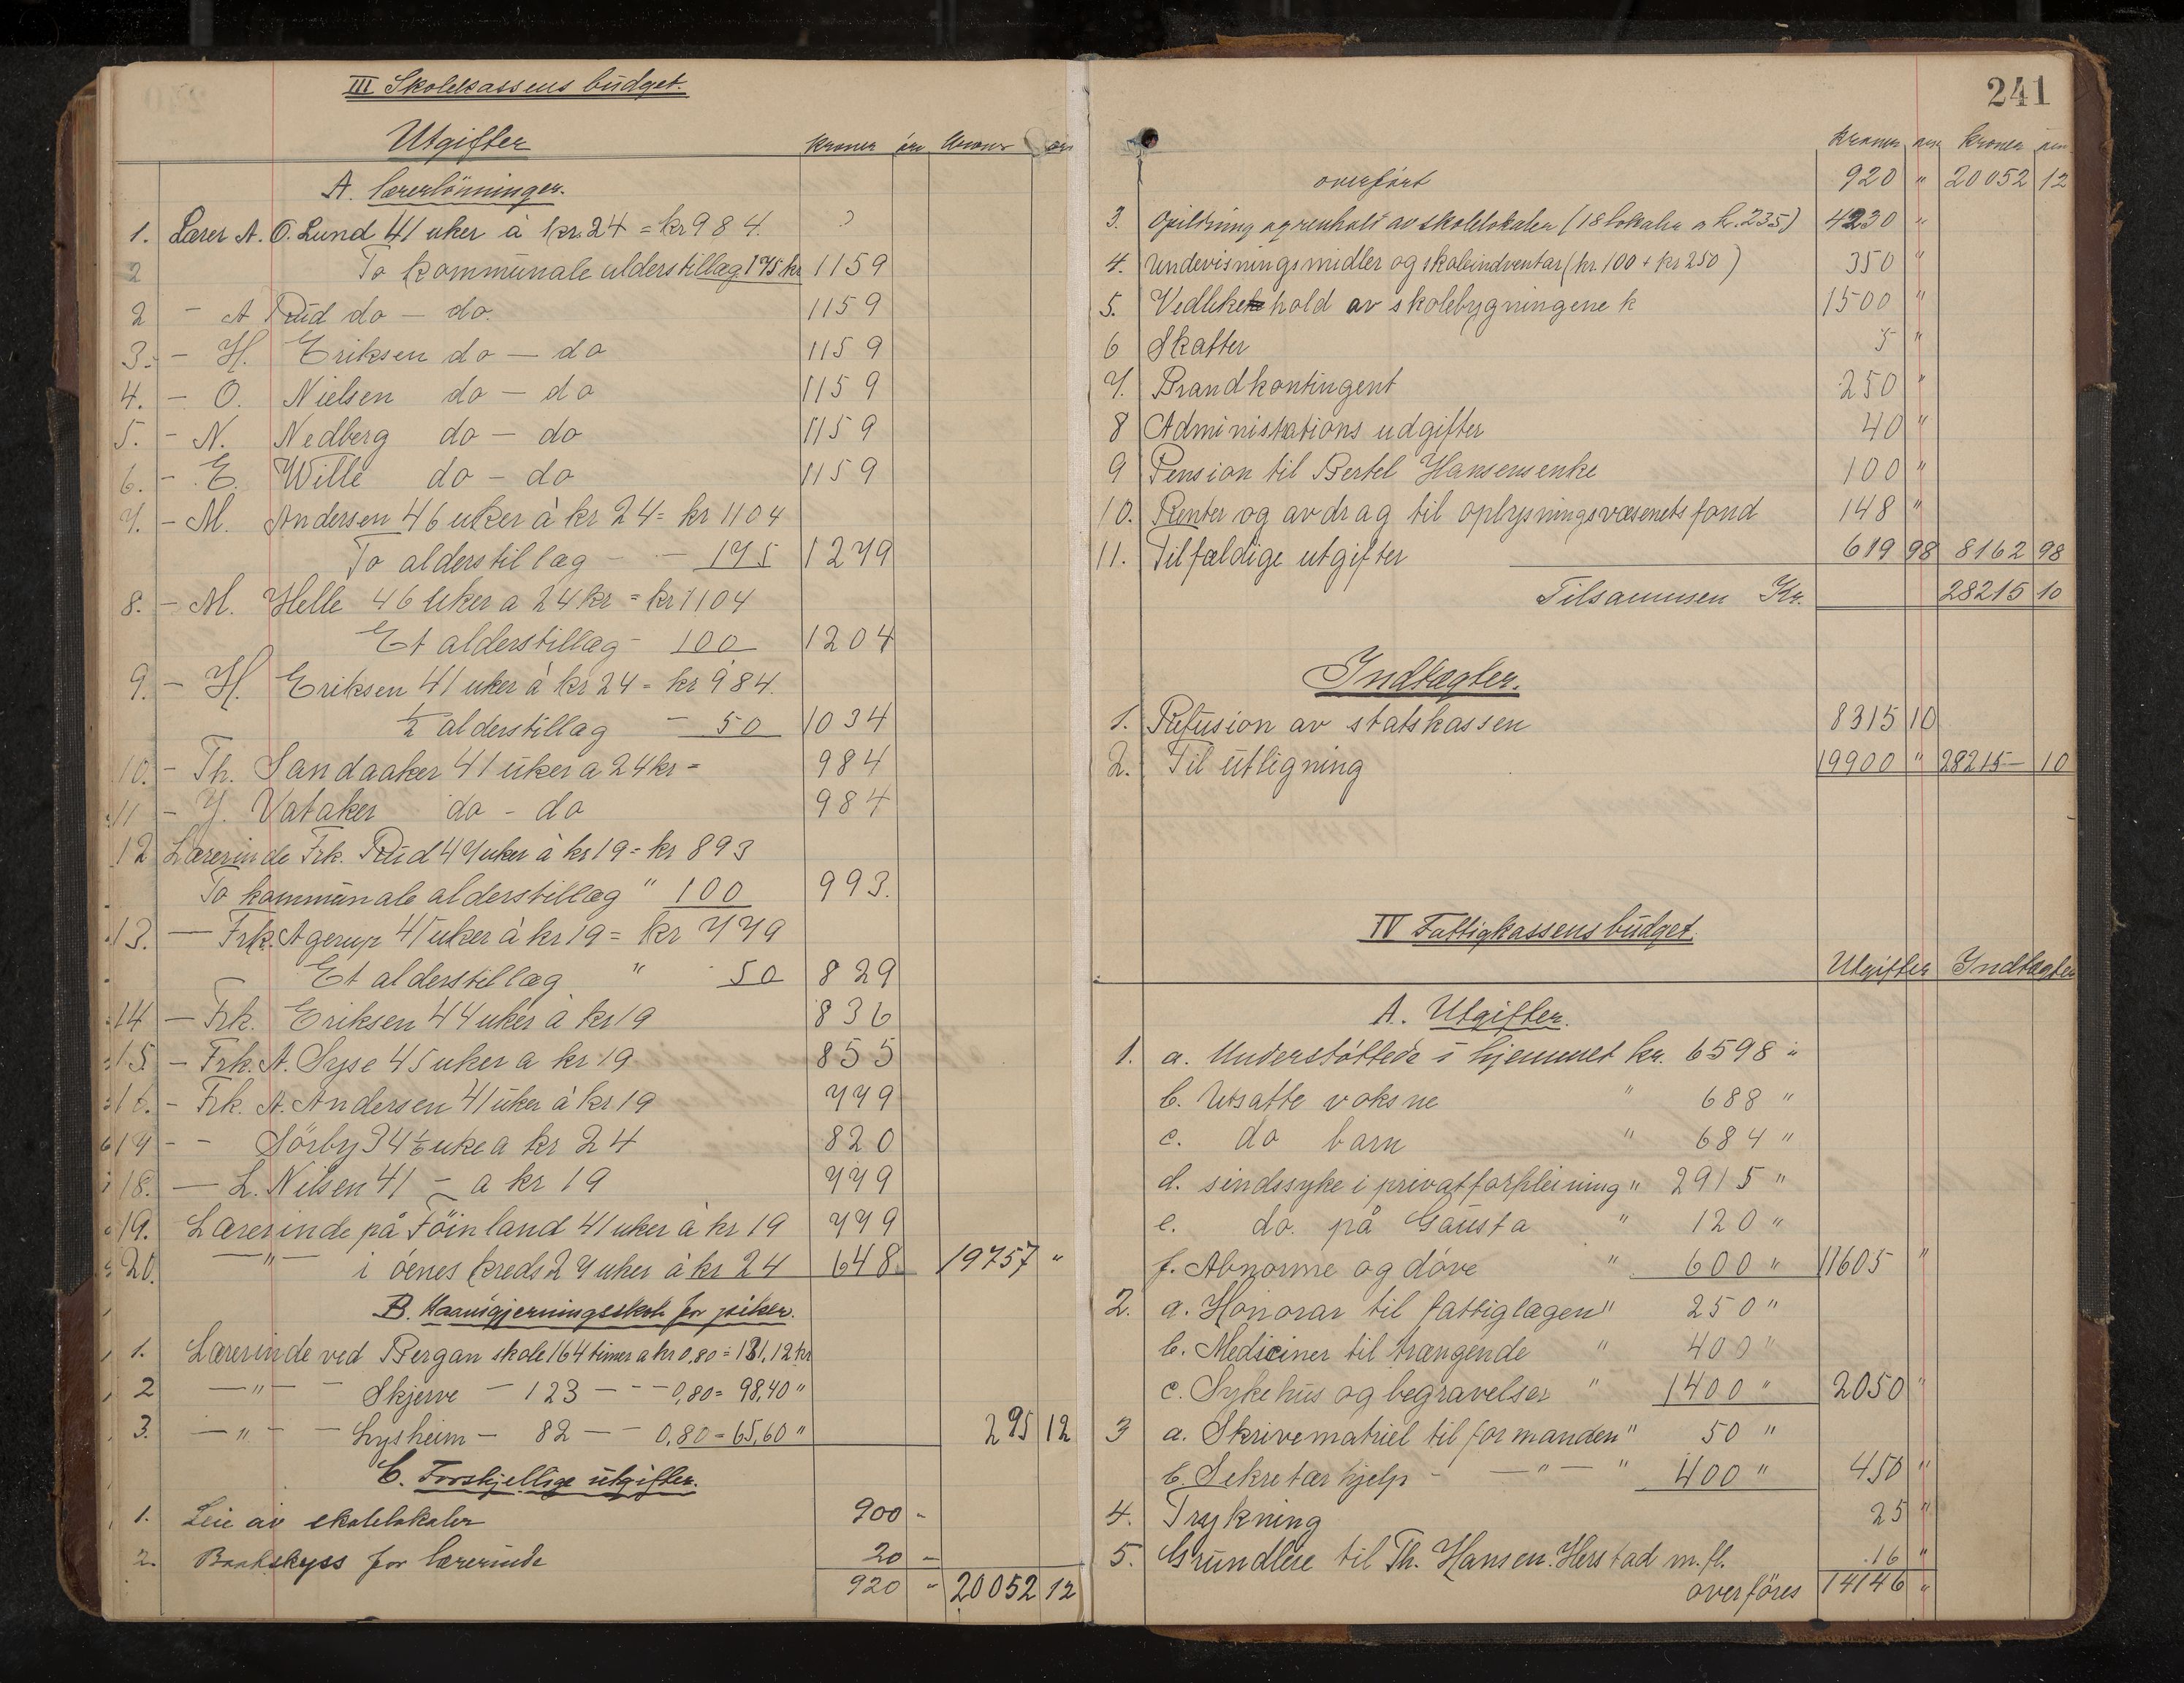 III Skolekassens budget.
Utgifter
Kroner øre Kroner øre
A. Lærerlönninger.
1. Lærer A. O. Lund 41 uker à kr. 24 = kr 984.
2 To kommunale alderstillæg 175 kr 1159
2 - A Rud do - do. 1159
3. - H. Eriksen do - do 1159
4. - O. Nielsen do - do 1159
5. - N. Nedberg do - do 1159
6. - E. Wille do - do 1159
7. - M. Andersen 46 uker à kr 24 = kr 1104
To alderstillæg - - 175 1279
8. - M. Helle 46 uker a 24 kr = kr 1104
Et alderstillæg - 100 1204
9. - H. Eriksen 41 uker à kr 24 = kr 984.
1/2 alderstillæg - 50 1034
10. - Th. Sandaaker 41 uker a 24 kr = 984
11 - Y. Vataker do - do 984
12 Lærerinde Frk. Rud 47 uker à kr 19 = kr 893
To kommunale alderstillæg " 100 993.
13. - Frk. Agerup 41 uker à kr 19 = kr 779
Et alderstillæg " 50 829
14 - Frk. Eriksen 44 uker à kr 19 836
15 - Frk. A. Syse 45 uker a kr 19 855
16. - Frk. A. Andersen 41 uker à kr 19 779
17 - - Sörby 34 1/6 uke a kr 24 820
18. - L. Nilsen 41 - a kr 19 779
19. Lærerinde på Föinland 41 uker à kr 19 779
20. - " - i óenes kreds 27 uker à kr 24 648. 19757 "
B. Haandgjerningsskole for piker.
1. Lærerinde ved Bergan skole 164 timer a kr 0,80 = 131,12 kr
2 - " - - Skjerve - 123 - - - 0,80 = 98,40 "
3. - " - - - Lysheim - 82 - - 0,80 = 65,60 " 295 12
C. Forskjellige utgifter.
1. Leie av skolelokaler 900 -
2. Baatskyss for lærerinde 20 -
920 " 20052 12
241
Kroner øre Kroner øre
overført 920 " 20052 12
3. Opildning og renhold av skolelokaler (18 lokaler a k. 235) 4230 "
4. Undevisningsmidler og skoleindventar (kr. 100 + kr 250) 350 "
5. Vedlikehold av skolebygningene k 1500 "
6 Skatter 5 "
7. Brandkontingent 250 "
8 Administrations udgifter 40 "
9 Pension til Bertel Hansens enke 100 "
10. Renter og avdrag til oplysningsvæsenets fond 148 "
11. Tilfældige utgifter 619 98 8162 98
Tilsammen Kr. 28215 10
Indtægter.
1. Refusion av statskassen 8315 10
2. Til utligning 19900 " 28215 - 10
IV Fattigkassens budget.
Utgifter Indtægter
A. Utgifter.
1. a. Understöttede i hjemmet kr. 6598 "
b. Utsatte voksne " 688 "
c. do barn " 684 "
d. sindssyke i privatforpleining " 2915 "
e. do. på Gausta " 120 "
f. Abnorme og dóve " 600 " 11605 "
2. a. Honorar til fattiglægen " 250 "
b. Mediciner til trængende " 400 "
c. Sykehus og begravelser " 1400 " 2050 "
3 a. Skrivematriel til formanden " 50 "
b. Sekretærhjelp - - " - " 400 " 450 "
4. Trykning 25 "
5. Grundleie til Th. Hansen Herstad m. fl. 16 "
overföres 14146 "